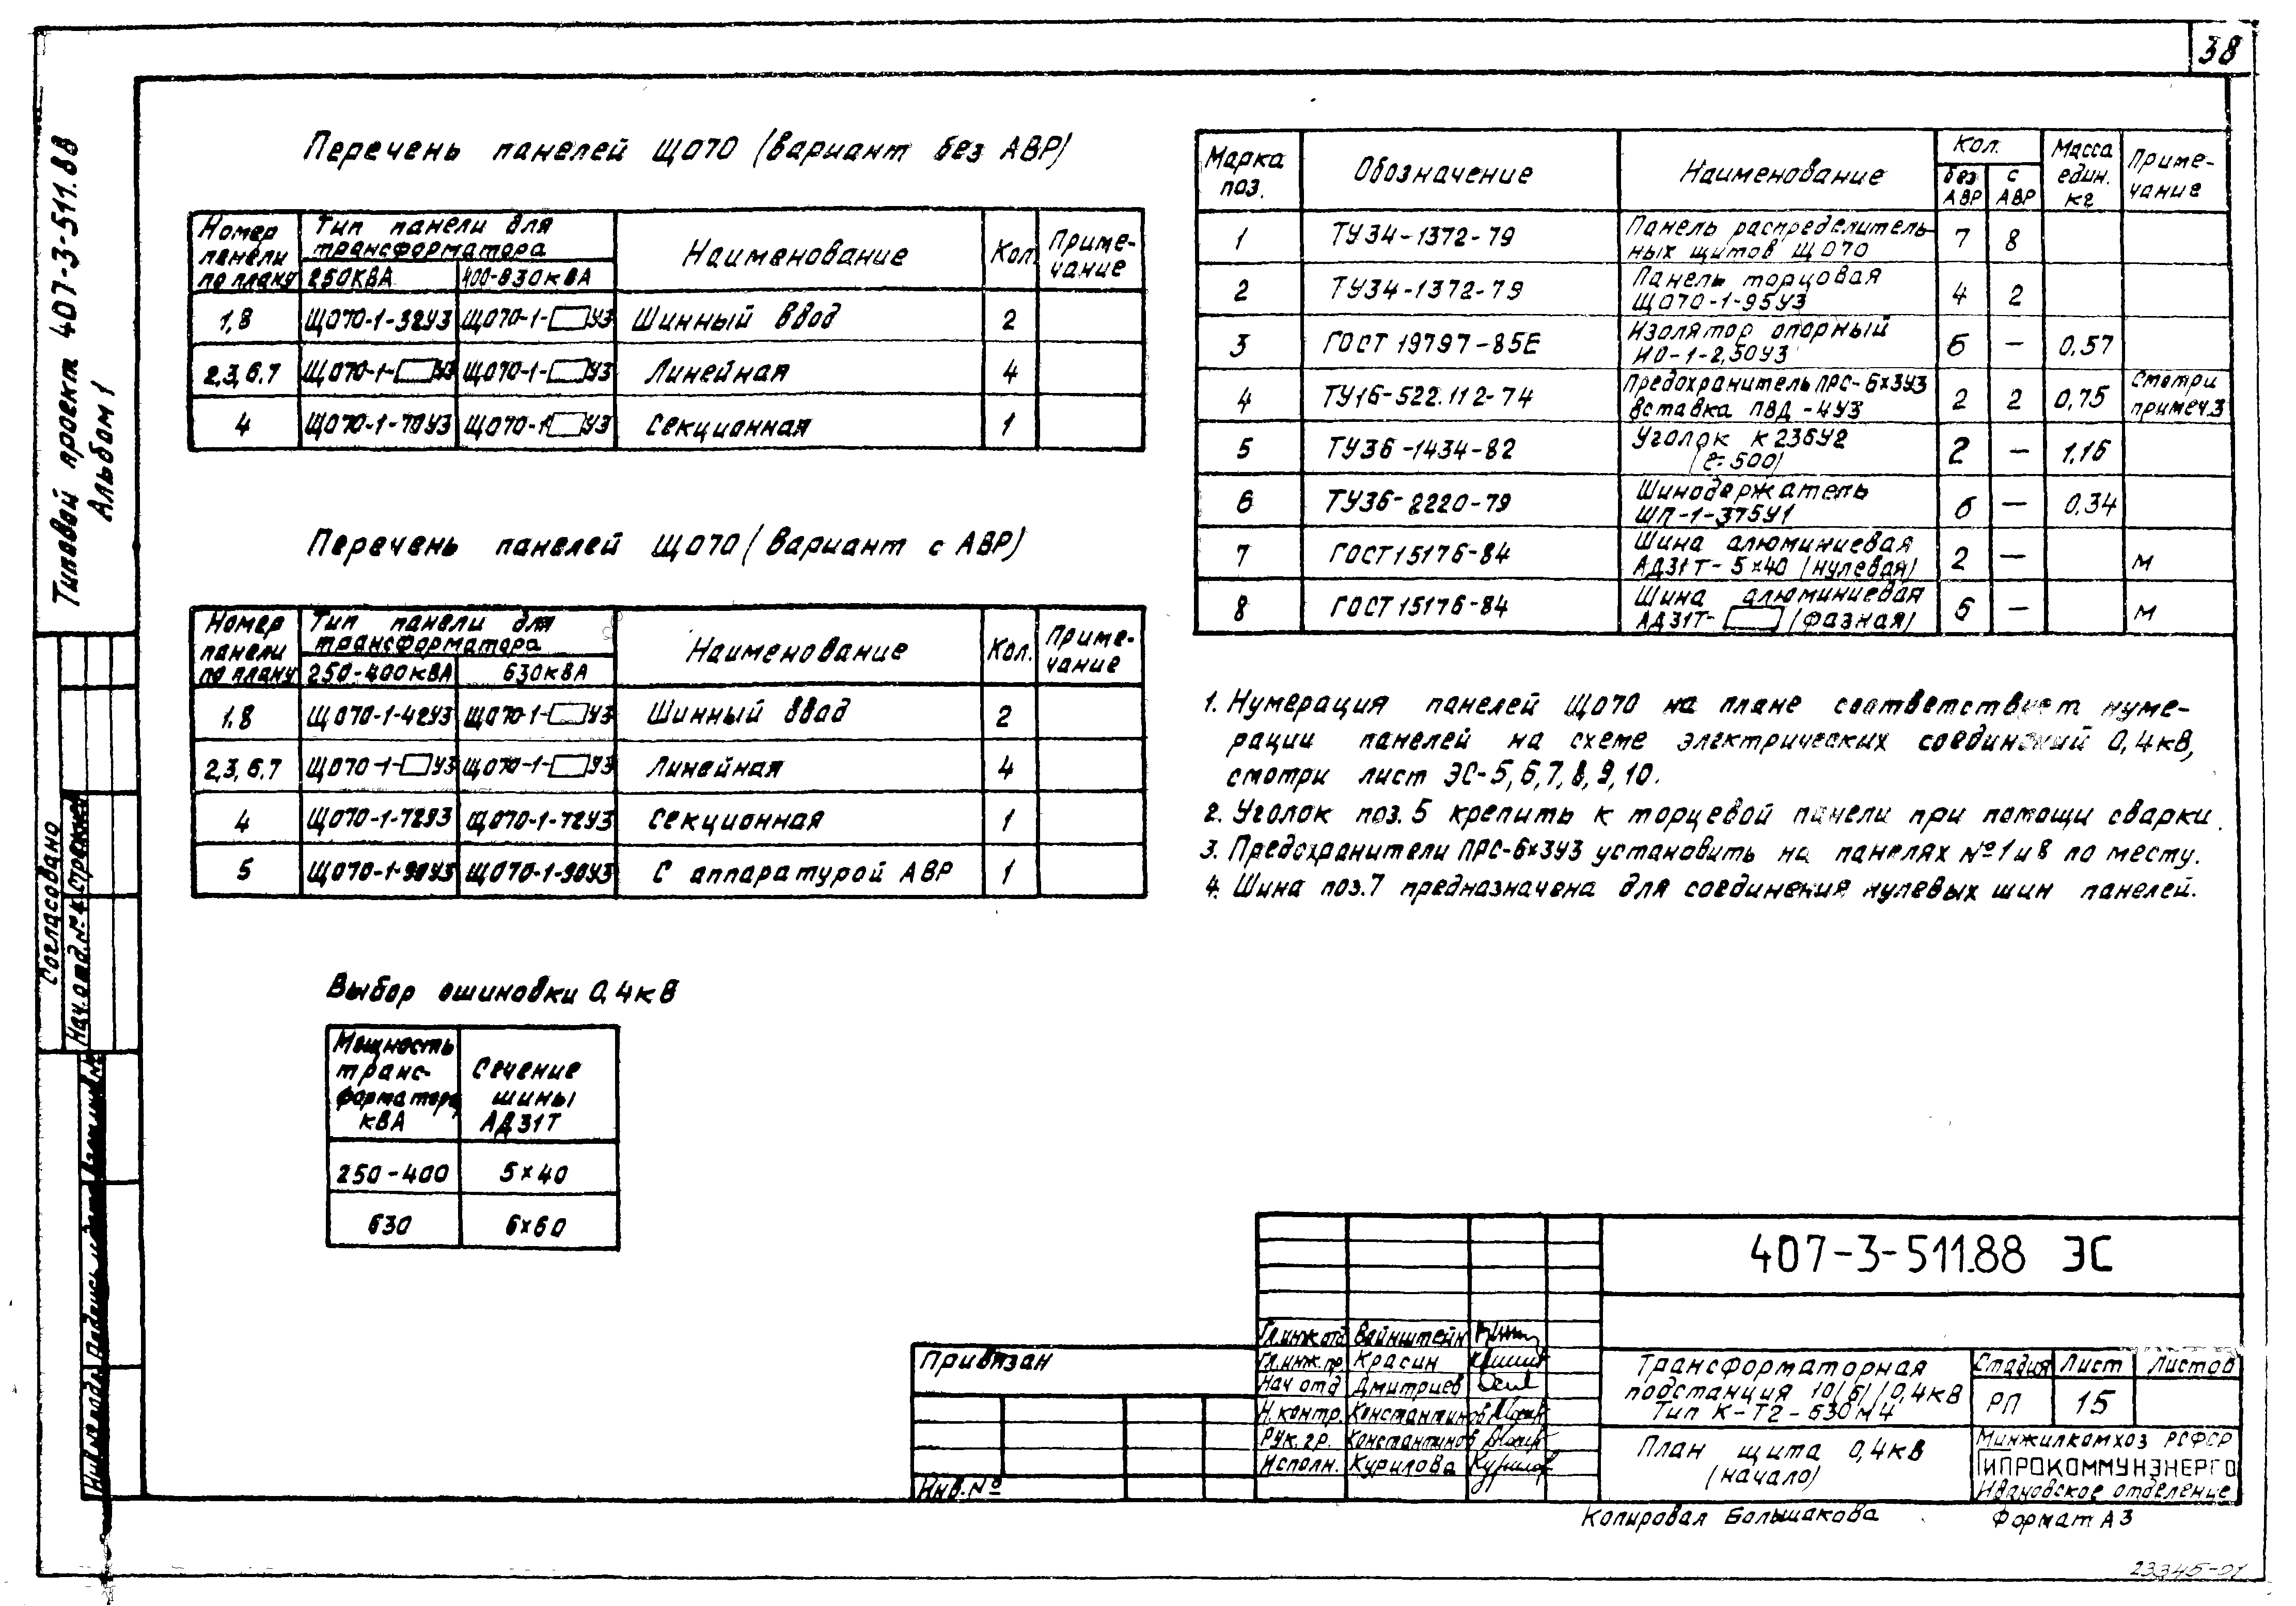 38
Типовой проект 407-3-511.88
Альбом 1
Перечень панелей ЩО70 (вариант без АВР)
Номер панели по плану | Тип панели для трансформатора | Наименование | Кол. | Примечание
250кВА | 400-630кВА
1,8 | ЩО70-1-32У3 | ЩО70-1-▭У3 | Шинный ввод | 2
2,3,6,7 | ЩО70-1-▭У3 | ЩО70-1-▭У3 | Линейная | 4
4 | ЩО70-1-70У3 | ЩО70-1▭У3 | Секционная | 1
Перечень панелей ЩО70 (вариант с АВР)
Номер панели по плану | Тип панели для трансформатора | Наименование | Кол. | Примечание
250-400кВА | 630кВА
1.8 | ЩО70-1-42У3 | ЩО70-1-▭У3 | Шинный ввод | 2
2,3,6,7 | ЩО70-1-▭У3 | ЩО70-1-▭У3 | Линейная | 4
4 | ЩО70-1-72У3 | ЩО70-1-72У3 | Секционная | 1
5 | ЩО70-1-90У3 | ЩО70-1-90У3 | С аппаратурой АВР | 1
Выбор ошиновки 0,4кВ
Мощность трансформатора, кВА | Сечение шины АД31Т
250-400 | 5×40
630 | 6×60
Марка поз. | Обозначение | Наименование | Кол. без АВР | с АВР | Масса един. кг | Примечание
1 | ТУ34-1372-79 | Панель распределительных щитов ЩО70 | 7 | 8
2 | ТУ34-1372-79 | Панель торцовая ЩО70-1-95У3 | 4 | 2
3 | ГОСТ 19797-85Е | Изолятор опорный ИО-1-2,50У3 | 6 | — | 0,57
4 | ТУ16-522.112-74 | Предохранитель ПРС-6×3У3 вставка ПВД-4У3 | 2 | 2 | 0,75 | Смотри примеч.3
5 | ТУ36-1434-82 | Уголок К236У2 (ℓ=500) | 2 | — | 1,16
6 | ТУ36-2220-79 | Шинодержатель ШП-1-375У1 | 6 | — | 0,34
7 | ГОСТ15176-84 | Шина алюминиевая АД31Т-5×40 (нулевая) | 2 | — | м
8 | ГОСТ15176-84 | Шина алюминиевая АД31Т-▭ (фазная) | 6 | — | м
1. Нумерация панелей ЩО70 на плане соответствует нуме-
рации панелей на схеме электрических соединений 0,4кВ,
смотри лист ЭС-5,6,7,8,9,10.
2. Уголок поз.5 крепить к торцевой панели при помощи сварки.
3. Предохранители ПРС-6×3У3 установить на панелях №1 и 8 по месту.
4. Шина поз.7 предназначена для соединения нулевых шин панелей.
Согласовано
Нач.отд.№4
Привязан
Инв.№
Гл.инж.отд Вайнштейн
Гл.инж.пр. Красин
Нач отд Дмитриев
Н.контр. Константинов
Рук.гр. Константинов
Исполн. Курилова
407-3-511.88 ЭС
Трансформаторная
подстанция 10(6)/0,4кВ
Тип К-Т2-630М4
Стадия | Лист | Листов
РП | 15
План щита 0,4кВ
(начало)
Минжилкомхоз РСФСР
ГИПРОКОММУНЭНЕРГО
Ивановское отделение
Копировал Большакова
Формат А3
23345-01